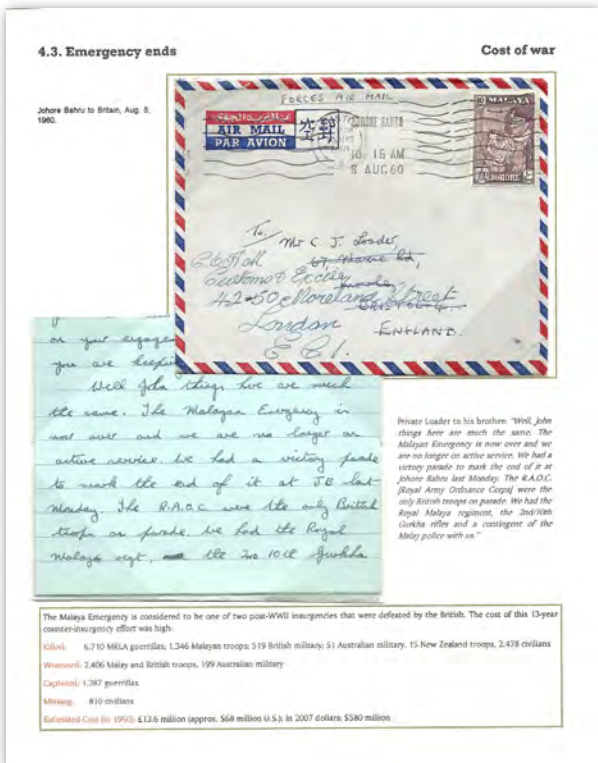 4.3. Emergency ends
Cost of war
Johore Bahru to Britain, Aug. 8,
1960.
FORCES AIR MAIL
AIR MAIL
PAR AVION
空郵
JOHORE BAHRU
10 15 AM
8 AUG 60
MALAYA
JOHORE
To.
Mr C. J. Loader,
Customs & Excise,
42-50 Moreland Street
London
ENGLAND.
E C 1.
on your engage
you are keepin
Well John things here are much
the same. The Malayan Emergency is
now over and we are no longer on
active service. We had a victory parade
to mark the end of it at JB last
Monday. The R.A.O.C were the only British
troops on parade. We had the Royal
Malaya regt, the 2nd 10th Gurkha
Private Loader to his brother: "Well, John
things here are much the same. The
Malayan Emergency is now over and we
are no longer on active service. We had a
victory parade to mark the end of it at
Johore Bahru last Monday. The R.A.O.C.
[Royal Army Ordnance Corps] were the
only British troops on parade. We had the
Royal Malaya regiment, the 2nd/10th
Gurkha rifles and a contingent of the
Malay police with us."
The Malaya Emergency is considered to be one of two post-WWII insurgencies that were defeated by the British. The cost of this 13-year
counter-insurgency effort was high:
Killed: 6,710 MRLA guerrillas; 1,346 Malayan troops; 519 British military; 51 Australian military, 15 New Zealand troops, 2,478 civilians
Wounded: 2,406 Malay and British troops, 199 Australian military
Captured: 1,287 guerrillas
Missing: 810 civilians
Estimated Cost (in 1960): £13.6 million (approx. $68 million U.S.); in 2007 dollars: $580 million